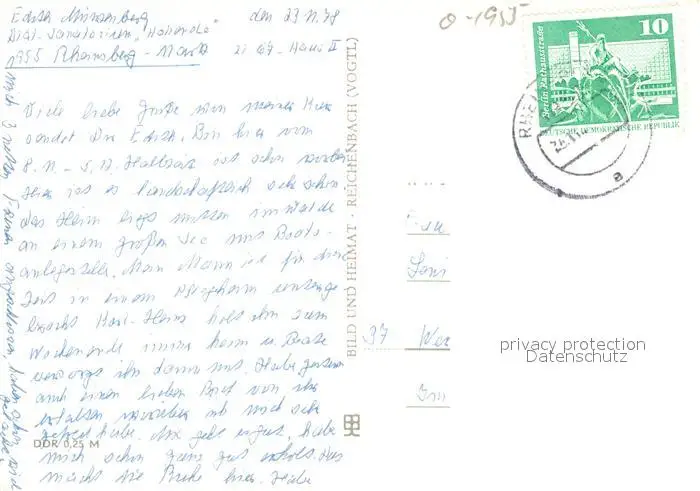 Edith Münsenberg den 23.11.78
Diät-Sanatorium "Hohenelse"
1955 Rheinsberg - Mark Zi 67 - Haus II
Viele liebe Grüße von meiner Kur
sendet Dir Edith. Bin hier vom
8.11. - 5.12. Halbzeit ist schon vorbei
Hier ist es landschaftlich sehr schön
das Heim liegt mitten im Walde
an einem großen See mit Boots-
anlegestelle. Mein Mann ist für die
Zeit in einem Pflegeheim unterge-
bracht Karl-Heinz holt ihn zum
Wochenende immer heim u. Beate
versorgt ihn dann mit. Habe gestern
auch einen lieben Brief von ihr
erhalten worüber ich mich sehr
gefreut habe. Mir geht es gut, habe
mich schon ganz gut erholt. Das
macht die Ruhe hier. Habe
mich 3 netten Frauen angeschlossen
DDR 0,25 M
BILD UND HEIMAT · REICHENBACH (VOGTL)
0-1955
10
Berlin, Rathausstraße
DEUTSCHE DEMOKRATISCHE REPUBLIK
RHE
a
37 Wer
privacy protection
Datenschutz